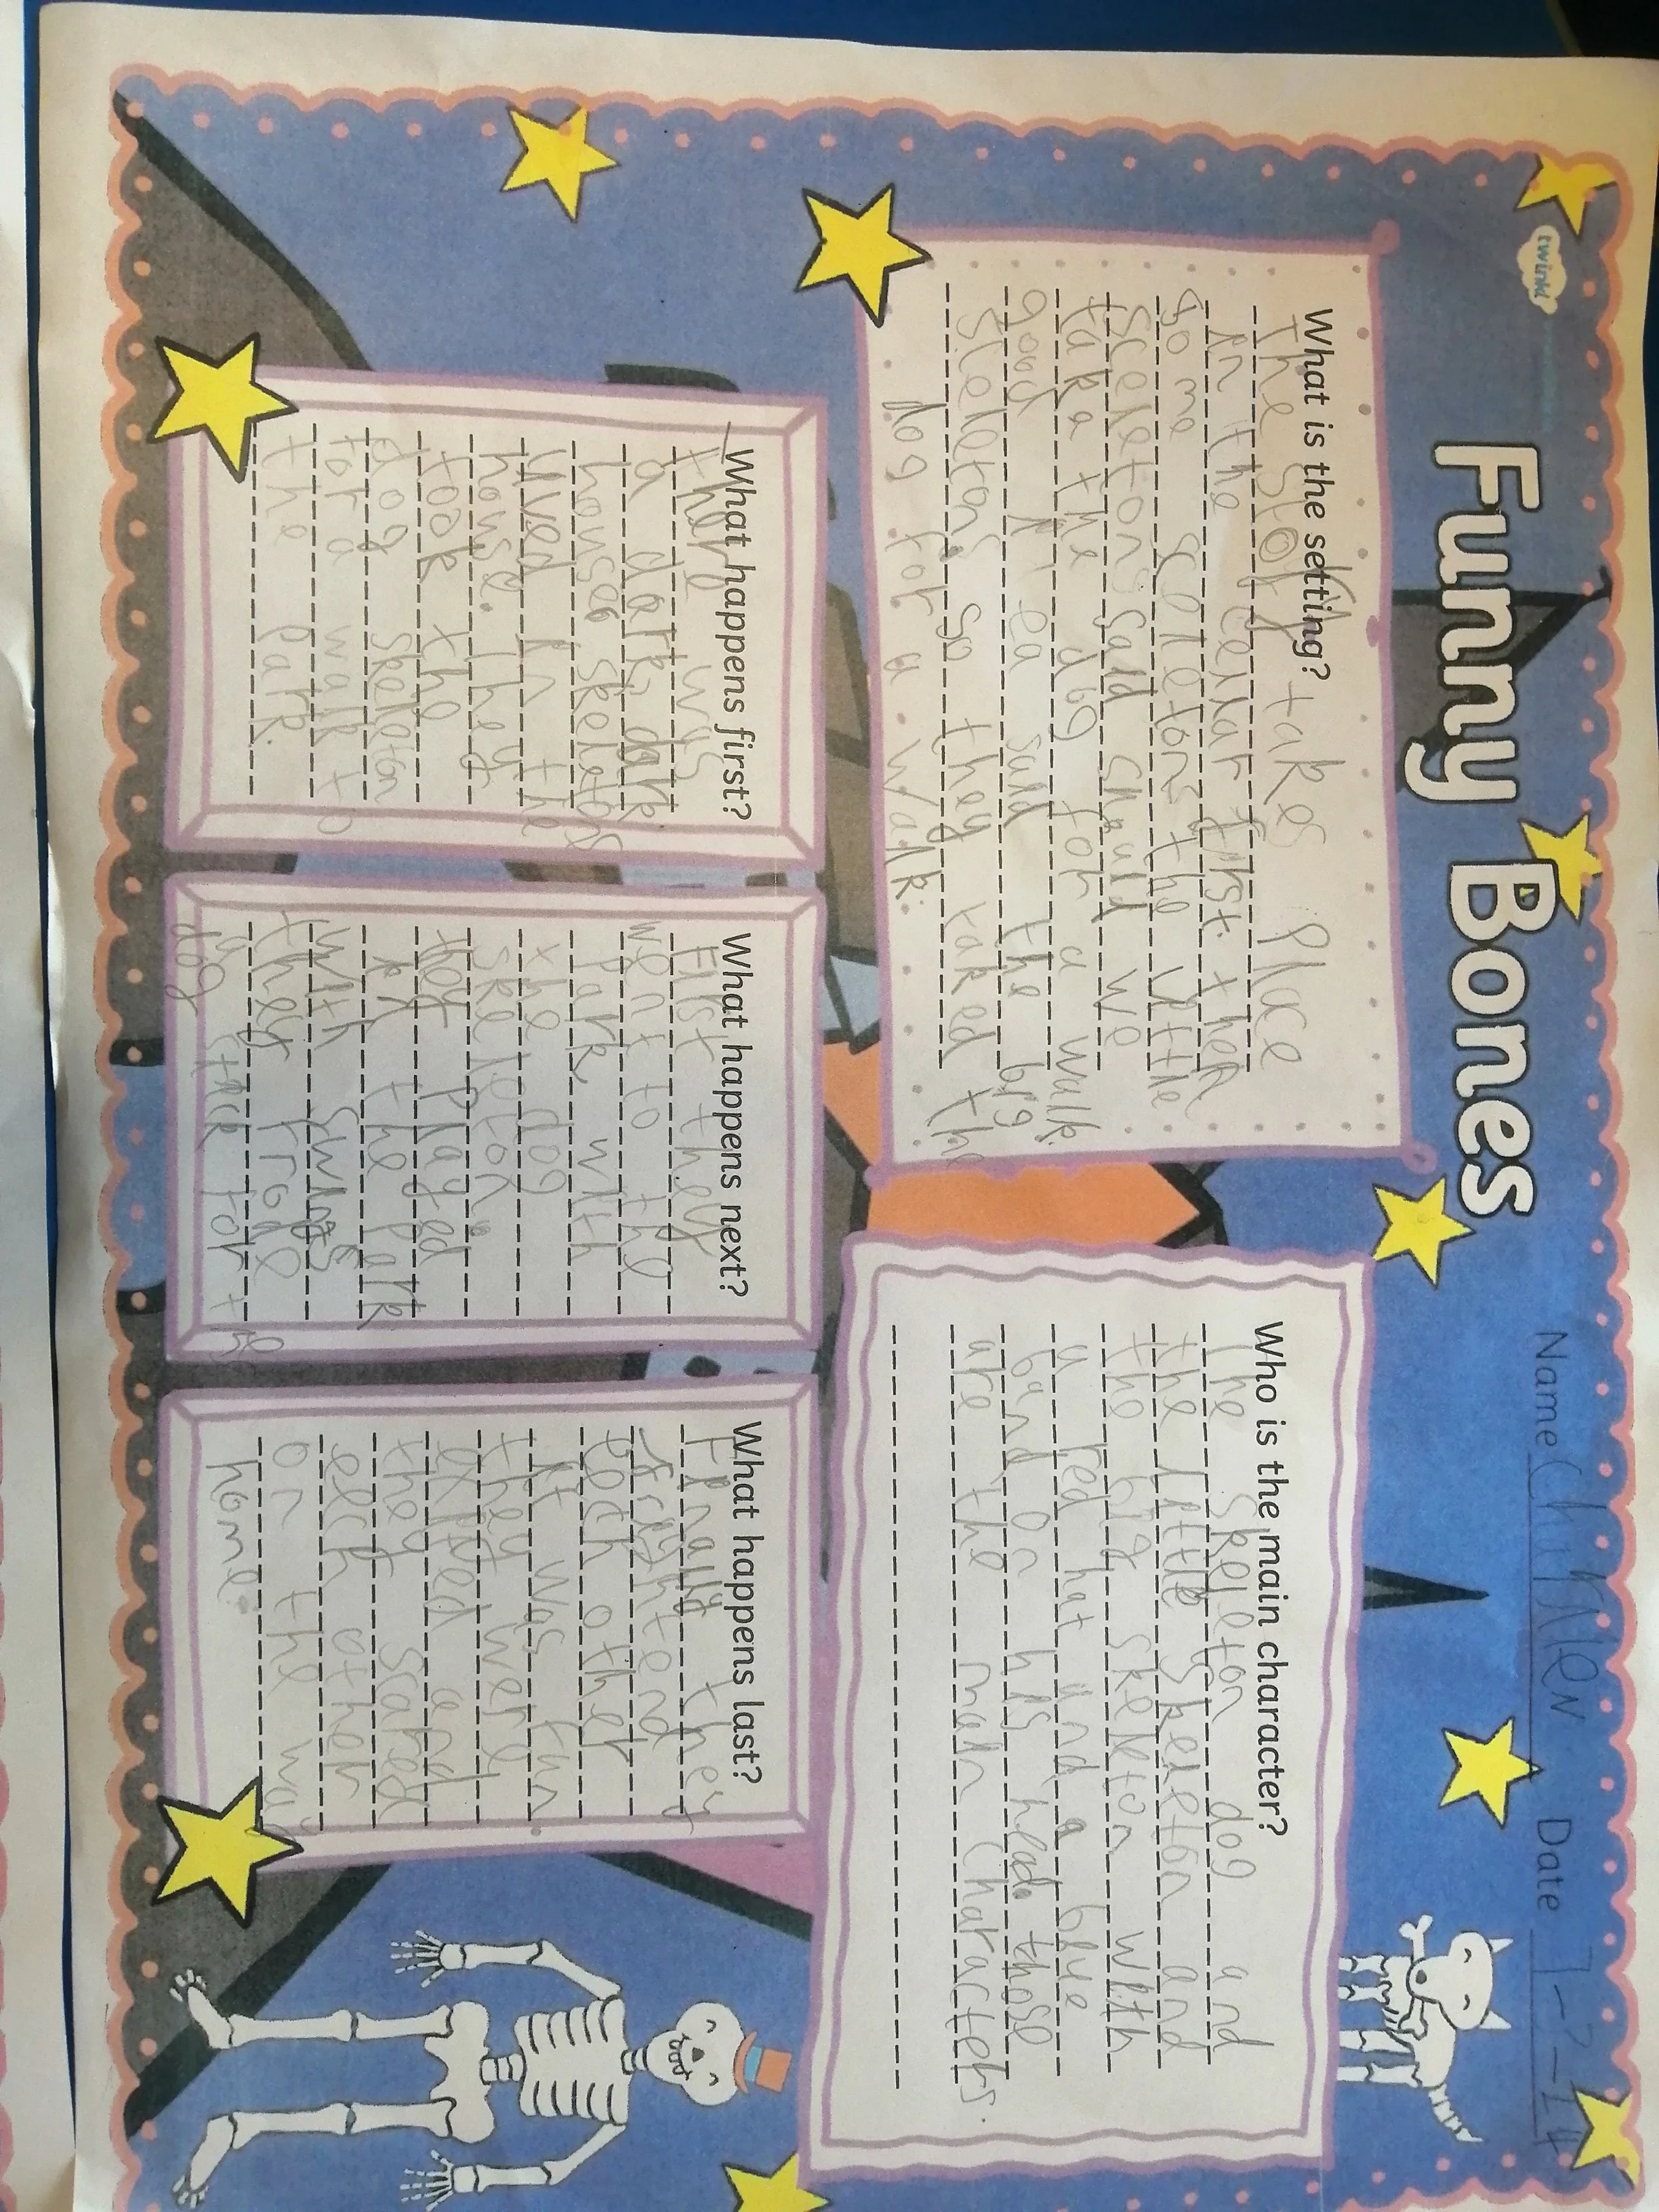 twinkl
Funny Bones
Name
Date
What is the setting?
The story takes place
in the cellar first. then
some sceletons the little
Sceleton said shall we
take the dog for a walk.
good idea said the big
Sceletons so they taked the
dog for a walk.
Who is the main character?
The skeleton dog and
the little skeleton and
the big skeleton with
a red hat and a blue
band on his head. those
are the main characters.
What happens first?
there was
a dark dark
house skeletons
lived in the
house. They
took the
dog skeleton
for a walk to
the park.
What happens next?
First they
went to the
park with
the dog
skeleton.
they played
in the park
with swings
they
dog
What happens last?
Finally they
each other
it was fun
they were
and
they scared
other
on the way
home.